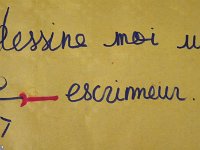 dessine moi u
escrimeur.